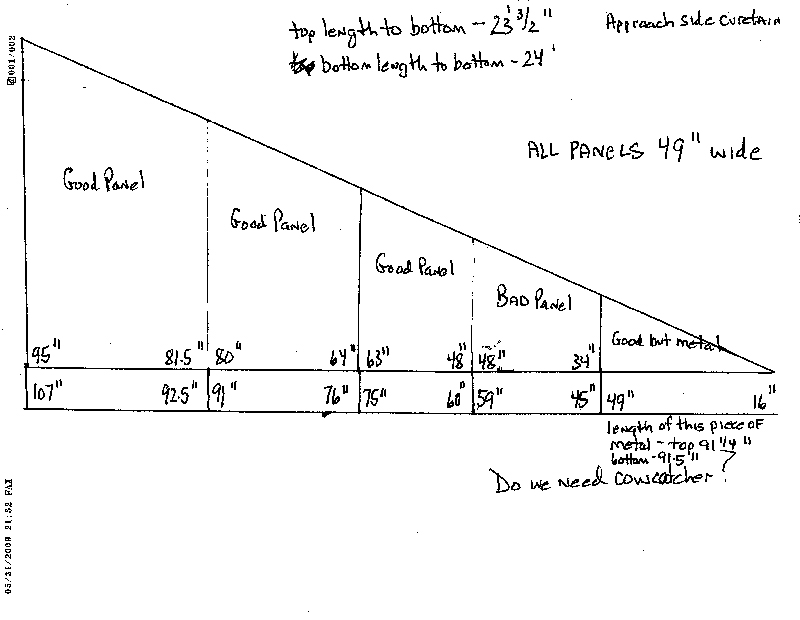 top length to bottom - 23' 3/2"
bottom length to bottom - 24'
Approach side curetain
ALL PANELS 49" wide
Good Panel
Good Panel
Good Panel
BAD PANEL
Good but metal
95" 81.5" 80" 64" 63" 48" 48" 34"
107" 92.5" 91" 76" 75" 60" 59" 45" 49" 16"
length of this piece of
metal - top 91 1/4"
bottom - 91.5"
Do we need cowcatcher?
001/002
05/31/2009 21:52 FAX